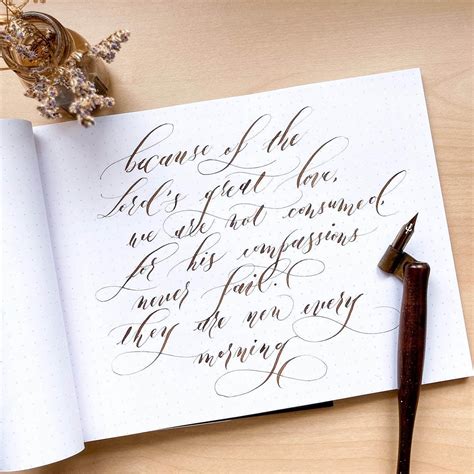 because of the
Lord's great love,
we are not consumed,
for his compassions
never fail.
they are new every
morning